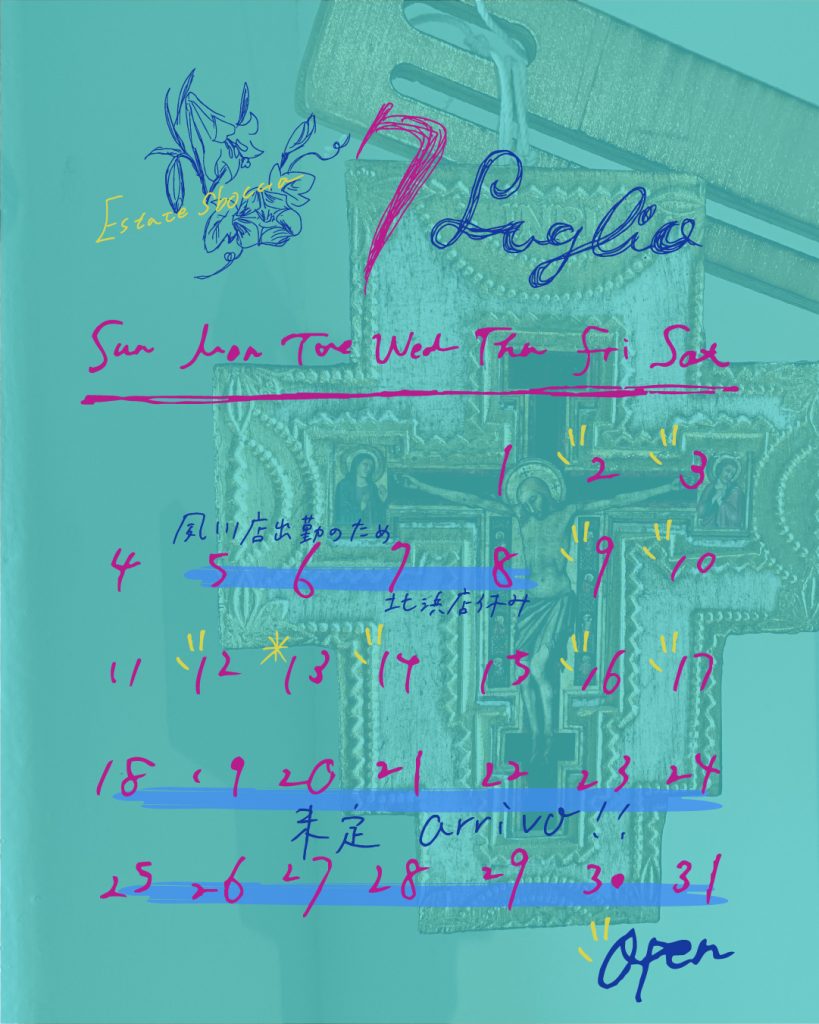 Estate sboccia
7 Luglio
Sun Mon Tue Wed Thu Fri Sat
1 2 3
夙川店出勤のため
4 5 6 7 8 9 10
北浜店休み
11 12 13 14 15 16 17
18 19 20 21 22 23 24
未定 arrivo!!
25 26 27 28 29 30 31
Open